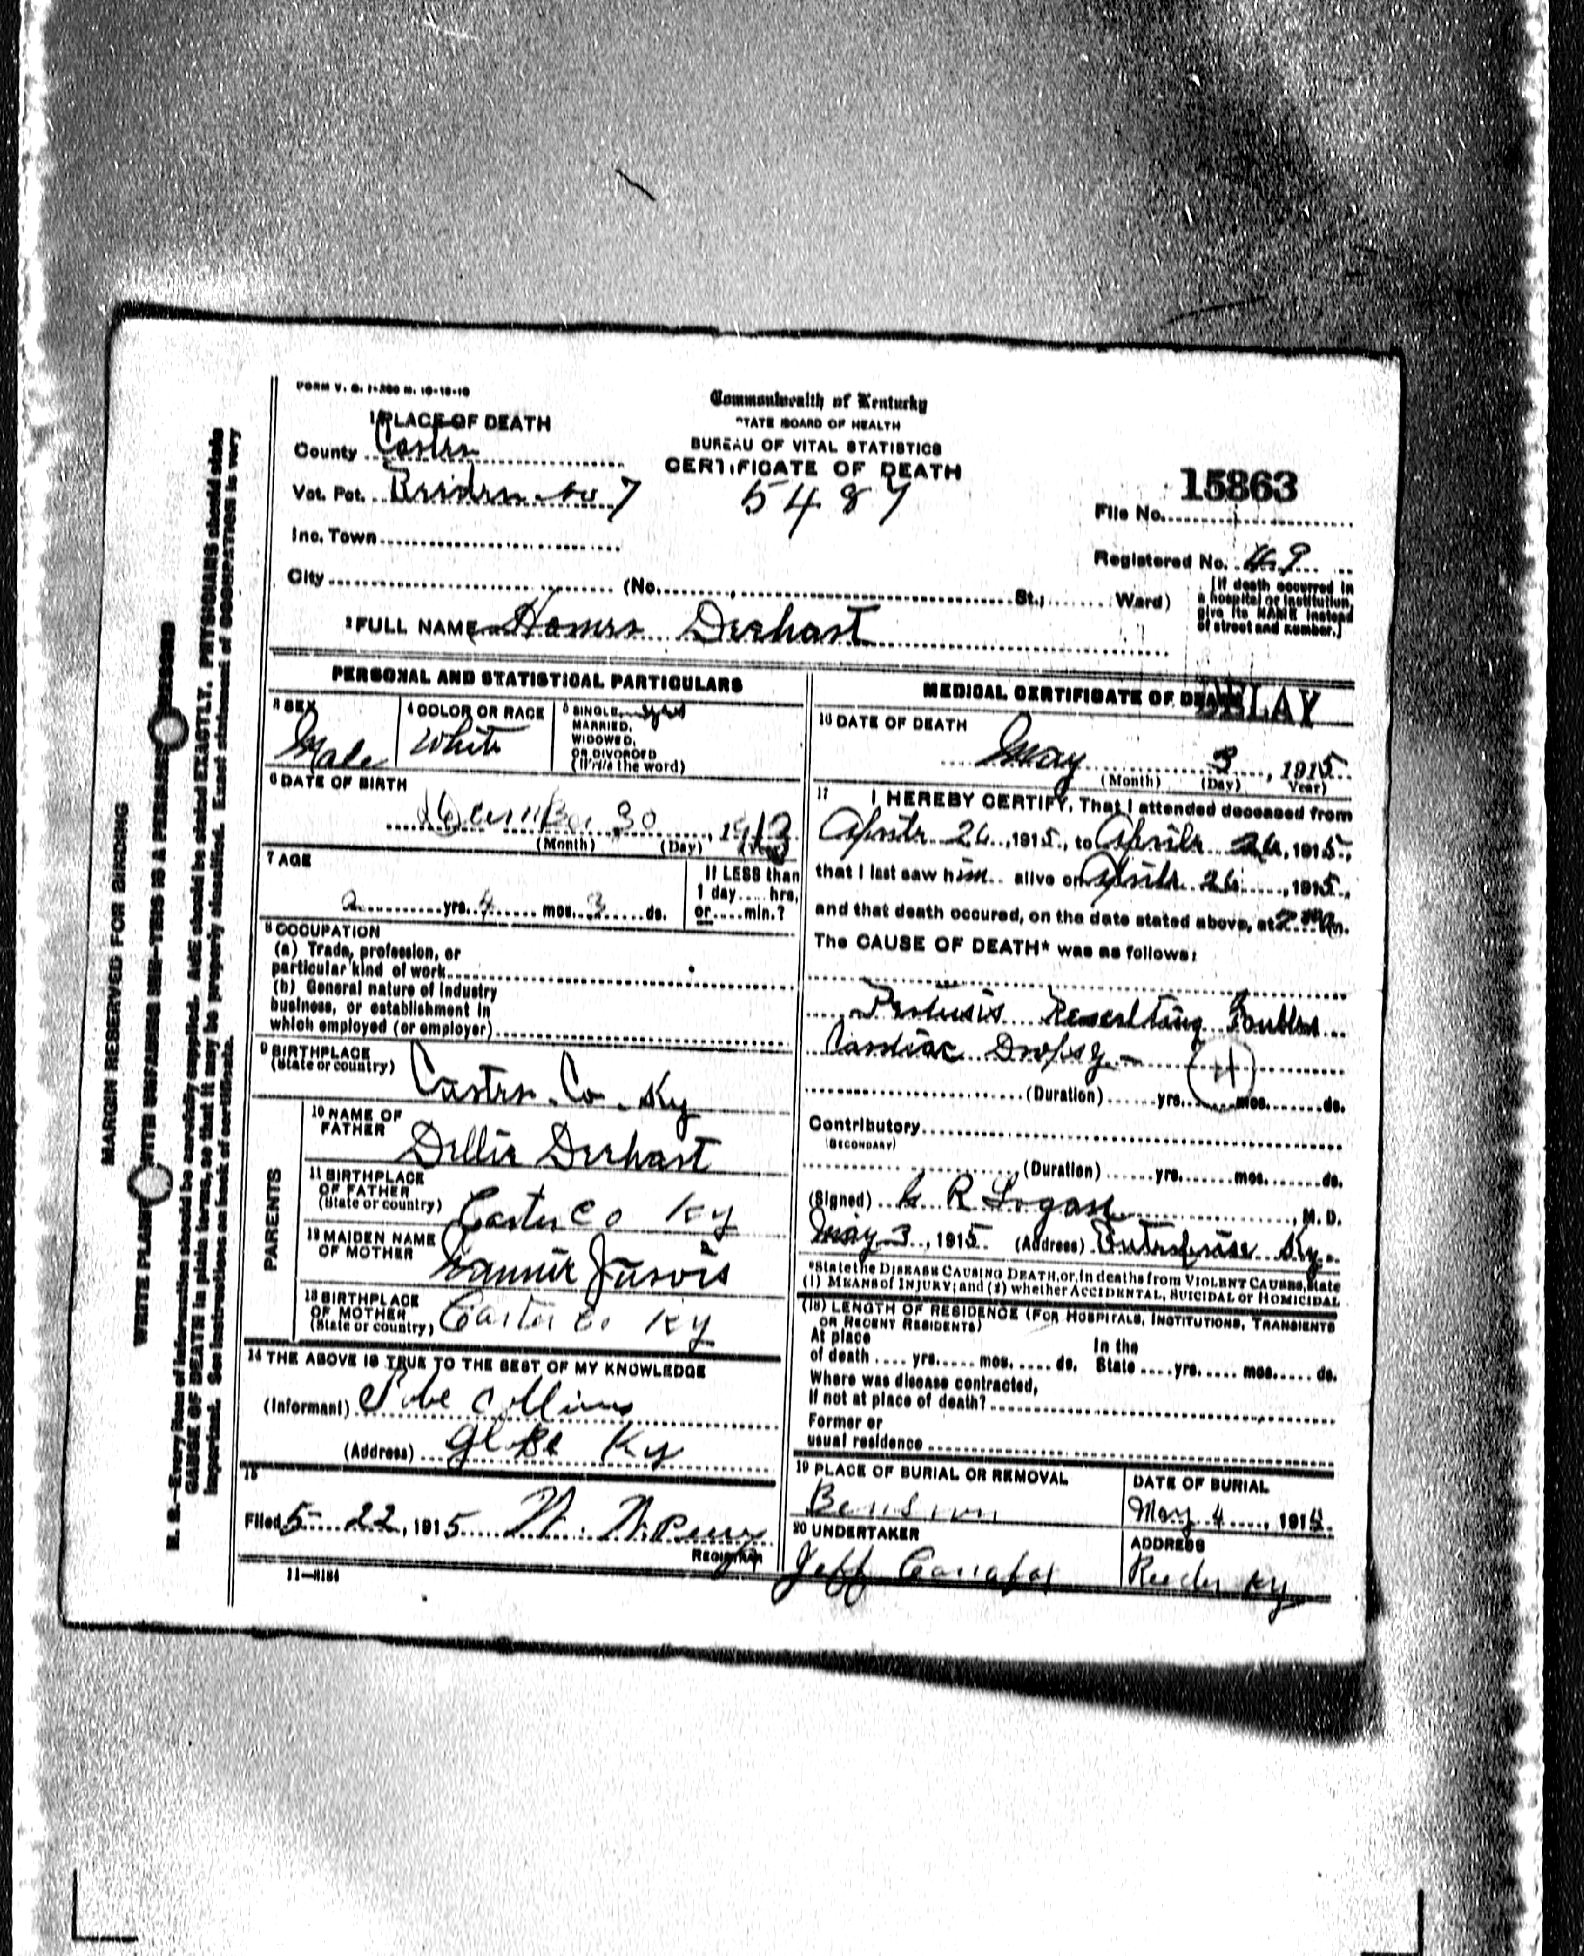 FORM V. S. 1-200 M. 10-10-10
Commonwealth of Kentucky
STATE BOARD OF HEALTH
BUREAU OF VITAL STATISTICS
CERTIFICATE OF DEATH
5487
1 PLACE OF DEATH
County Carter
Vot. Pct. No 7
Inc. Town
City (No. St.; Ward)
15863
File No.
Registered No. 49
[If death occurred in
a hospital or institution,
give its NAME instead
of street and number.]
2 FULL NAME Homer Dehart
PERSONAL AND STATISTICAL PARTICULARS
3 SEX
Male
4 COLOR OR RACE
White
5 SINGLE,
MARRIED,
WIDOWED,
OR DIVORCED
(Write the word)
6 DATE OF BIRTH
December 30, 1912
(Month) (Day) (Year)
7 AGE
2 yrs. 4 mos. 3 ds.
If LESS than
1 day.....hrs.
or.....min.?
8 OCCUPATION
(a) Trade, profession, or
particular kind of work
(b) General nature of industry
business, or establishment in
which employed (or employer)
9 BIRTHPLACE
(State or country)
Carter Co. Ky
PARENTS
10 NAME OF
FATHER
Dellie Dehart
11 BIRTHPLACE
OF FATHER
(State or country)
Carter Co Ky
12 MAIDEN NAME
OF MOTHER
Nannie Jarvis
13 BIRTHPLACE
OF MOTHER
(State or country)
Carter Co Ky
14 THE ABOVE IS TRUE TO THE BEST OF MY KNOWLEDGE
(Informant) Collins
(Address) Globe Ky
15
Filed 5-22, 1915
REGISTRAR
11-3184
MEDICAL CERTIFICATE OF DEATH
DELAY
16 DATE OF DEATH
May 3, 1915
(Month) (Day) Year)
17 I HEREBY CERTIFY, That I attended deceased from
April 26, 1915, to April 26, 1915,
that I last saw him alive on April 26, 1915,
and that death occured, on the date stated above, at 2 m.
The CAUSE OF DEATH* was as follows:
Pertusis Resulting
Cardiac Dropsy -
(Duration) yrs. mos. ds.
Contributory
(SECONDARY)
(Duration) yrs. mos. ds.
(Signed) G R Logan, M. D.
May 3, 1915 (Address) Enterprise Ky.
*State the DISEASE CAUSING DEATH, or, in deaths from VIOLENT CAUSES, state
(1) MEANS of INJURY; and (2) whether ACCIDENTAL, SUICIDAL or HOMICIDAL
(18) LENGTH OF RESIDENCE (FOR HOSPITALS, INSTITUTIONS, TRANSIENTS
OR RECENT RESIDENTS)
At place In the
of death .... yrs. .... mos. .... ds. State .... yrs. .... mos. .... ds.
Where was disease contracted,
if not at place of death?
Former or
usual residence
19 PLACE OF BURIAL OR REMOVAL
DATE OF BURIAL
May 4, 1915
20 UNDERTAKER
Jeff
ADDRESS
Reeder Ky
MARGIN RESERVED FOR BINDING
WRITE PLAINLY WITH UNFADING INK—THIS IS A PERMANENT RECORD
N. B.—Every item of information should be carefully supplied. AGE should be stated EXACTLY. PHYSICIANS should state
CAUSE OF DEATH in plain terms, so that it may be properly classified. Exact statement of OCCUPATION is very
important. See instructions on back of certificate.